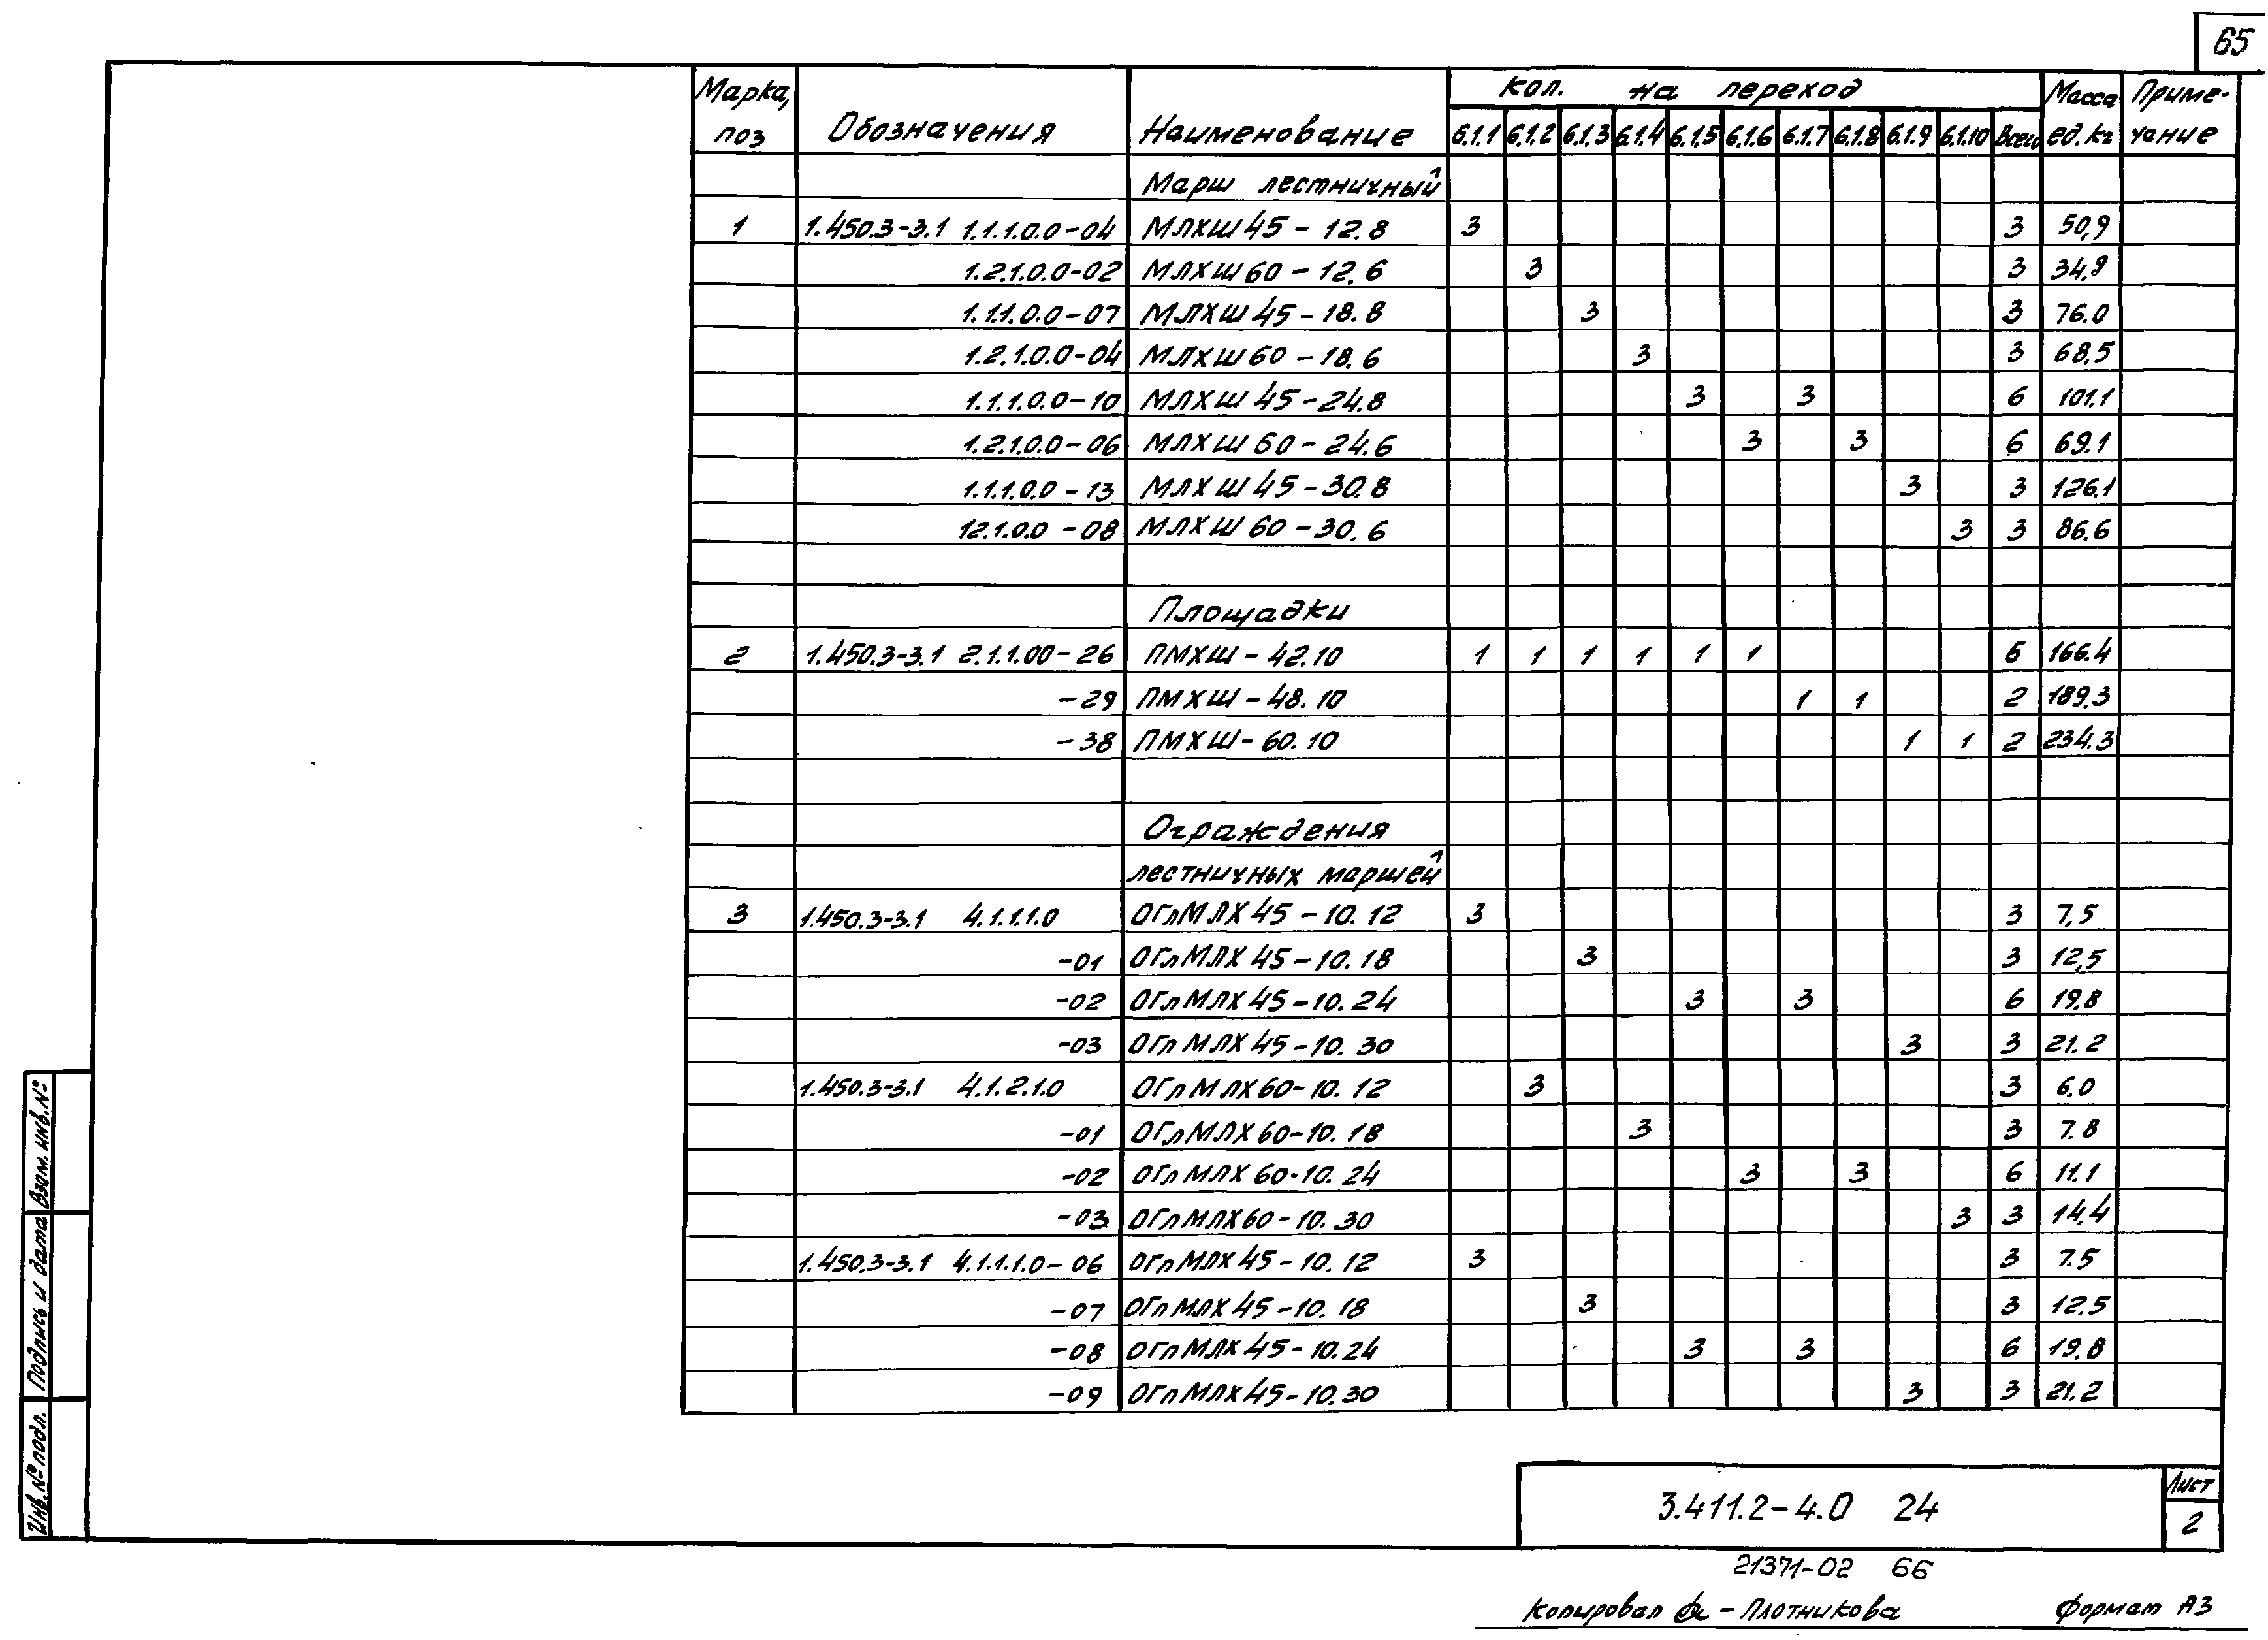 65
Марка, поз Обозначения Наименование Кол. на переход Масса ед. кг Приме-чание
6.1.1 6.1.2 6.1.3 6.1.4 6.1.5 6.1.6 6.1.7 6.1.8 6.1.9 6.1.10 Всего
Марш лестничный
1 1.450.3-3.1 1.1.1.0.0-04 МЛХШ 45 - 12.8 3 3 50,9
1.2.1.0.0-02 МЛХШ 60 - 12.6 3 3 34,9
1.1.1.0.0-07 МЛХШ 45 - 18.8 3 3 76.0
1.2.1.0.0-04 МЛХШ 60 - 18.6 3 3 68,5
1.1.1.0.0-10 МЛХШ 45 - 24.8 3 3 6 101.1
1.2.1.0.0-06 МЛХШ 60 - 24.6 3 3 6 69.1
1.1.1.0.0-13 МЛХШ 45 - 30.8 3 3 126.1
12.1.0.0-08 МЛХШ 60 - 30.6 3 3 86.6
Площадки
2 1.450.3-3.1 2.1.1.00-26 ПМХШ - 42.10 1 1 1 1 1 1 6 166.4
-29 ПМХШ - 48.10 1 1 2 189.3
-38 ПМХШ - 60.10 1 1 2 234.3
Ограждения
лестничных маршей
3 1.450.3-3.1 4.1.1.1.0 ОГлМЛХ 45 - 10.12 3 3 7,5
-01 ОГлМЛХ 45 - 10.18 3 3 12,5
-02 ОГлМЛХ 45 - 10.24 3 3 6 19.8
-03 ОГлМЛХ 45 - 10.30 3 3 21.2
1.450.3-3.1 4.1.2.1.0 ОГлМЛХ 60 - 10.12 3 3 6.0
-01 ОГлМЛХ 60 - 10.18 3 3 7.8
-02 ОГлМЛХ 60 - 10.24 3 3 6 11.1
-03 ОГлМЛХ 60 - 10.30 3 3 14.4
1.450.3-3.1 4.1.1.1.0-06 ОГпМЛХ 45 - 10.12 3 3 7.5
-07 ОГпМЛХ 45 - 10.18 3 3 12.5
-08 ОГпМЛХ 45 - 10.24 3 3 6 19.8
-09 ОГпМЛХ 45 - 10.30 3 3 21.2
Взам. инв. №
Подпись и дата
Инв. № подл.
3.411.2-4.0 24
Лист
2
21371-02 66
Копировал - Плотникова Формат А3